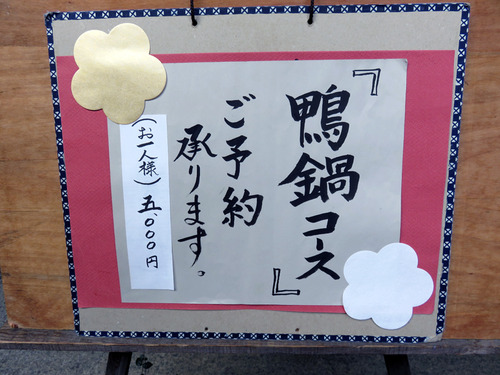 『鴨鍋コース』
ご予約
承ります。
(お一人様)五、〇〇〇円